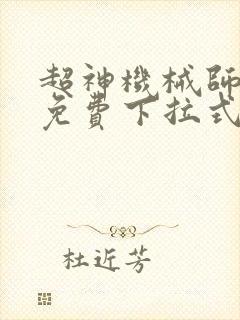 超神機械師
免費下拉式
杜近芳